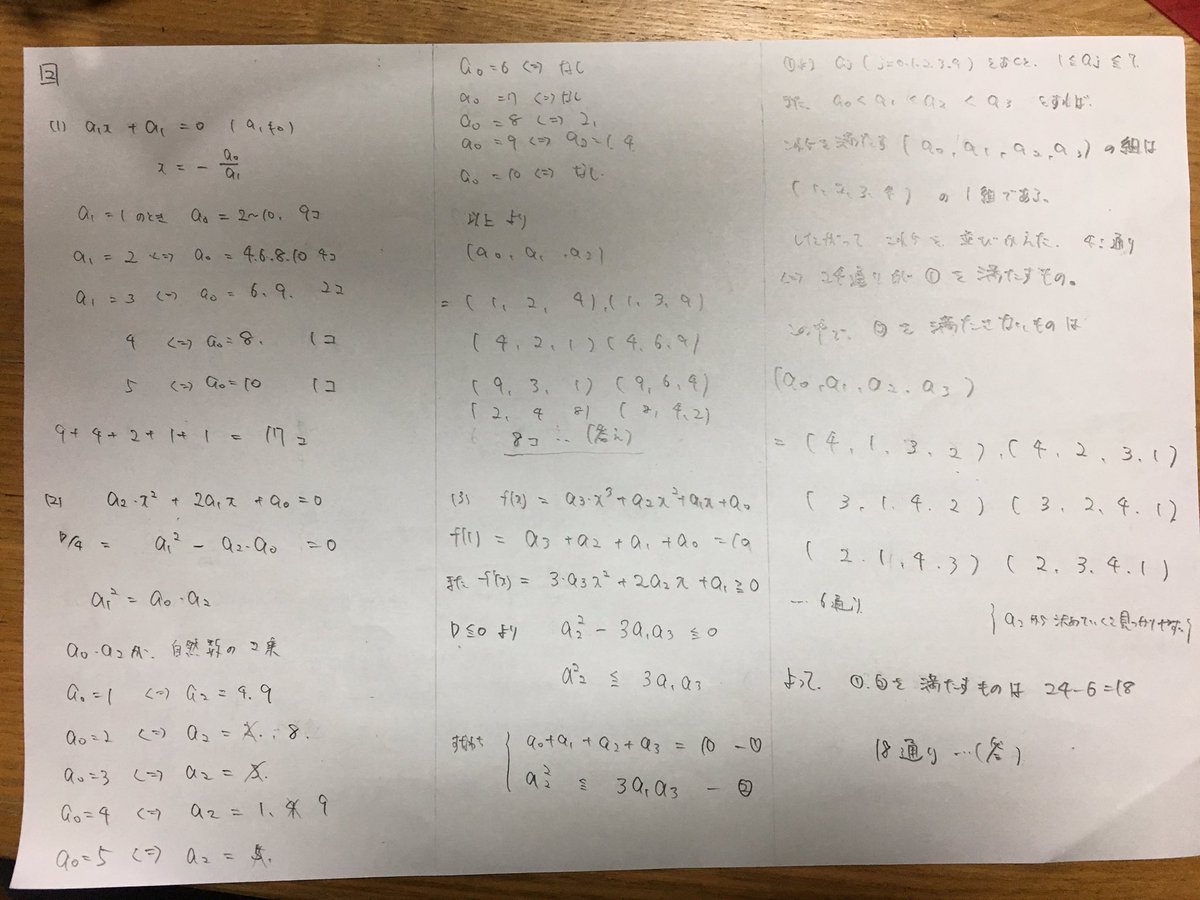 2
(1) a₁x + a₁ = 0 (a₁≠0)
x = - a₀/a₁
a₁ = 1 のとき a₀ = 2~10. 9コ
a₁ = 2 <=> a₀ = 4.6.8.10 4コ
a₁ = 3 <=> a₀ = 6.9. 2コ
4 <=> a₀ = 8. 1コ
5 <=> a₀ = 10 1コ
9 + 4 + 2 + 1 + 1 = 17コ
(2) a₂・x² + 2a₁x + a₀ = 0
D/4 = a₁² - a₂・a₀ = 0
a₁² = a₀・a₂
a₀・a₂が、自然数の2乗
a₀ = 1 <=> a₂ = 4.9
a₀ = 2 <=> a₂ = 2. 8.
a₀ = 3 <=> a₂ = 3.
a₀ = 4 <=> a₂ = 1. 4 9
a₀ = 5 <=> a₂ = 5.
a₀ = 6 <=> なし
a₀ = 7 <=> なし
a₀ = 8 <=> 2,
a₀ = 9 <=> a₂ = 1 4
a₀ = 10 <=> なし.
以上より
(a₀, a₁, a₂)
= (1, 2, 4), (1, 3, 9)
(4, 2, 1) (4, 6, 9)
(9, 3, 1) (9, 6, 4)
(2, 4, 8) (8, 4, 2)
8コ … (答え)
(3) f(x) = a₃・x³ + a₂x² + a₁x + a₀
f(1) = a₃ + a₂ + a₁ + a₀ = 10
また f'(x) = 3・a₃x² + 2a₂x + a₁ ≧ 0
D≦0 より a₂² - 3a₁a₃ ≦ 0
a₂² ≦ 3a₁a₃
すなわち a₀ + a₁ + a₂ + a₃ = 10 - ①
a₂² ≦ 3a₁a₃ - ②
①より aj (j=0.1.2.3.4) とおくと、1≦aj≦7.
また a₀ < a₁ < a₂ < a₃ とすれば.
これらを満たす (a₀, a₁, a₂, a₃) の組は
(1, 2, 3, 4) の1組である。
したがって これらを並びかえた. 4! 通り
<=> 24通りが ①を満たすもの。
この中で、②を満たさないものは
(a₀, a₁, a₂, a₃)
= (4, 1, 3, 2), (4, 2, 3, 1)
(3, 1, 4, 2) (3, 2, 4, 1)
(2, 1, 4, 3) (2, 3, 4, 1)
… 6通り
{a₂から決めていくと見つかりやすい}
よって、①.②を満たすものは 24-6=18
18通り …(答)